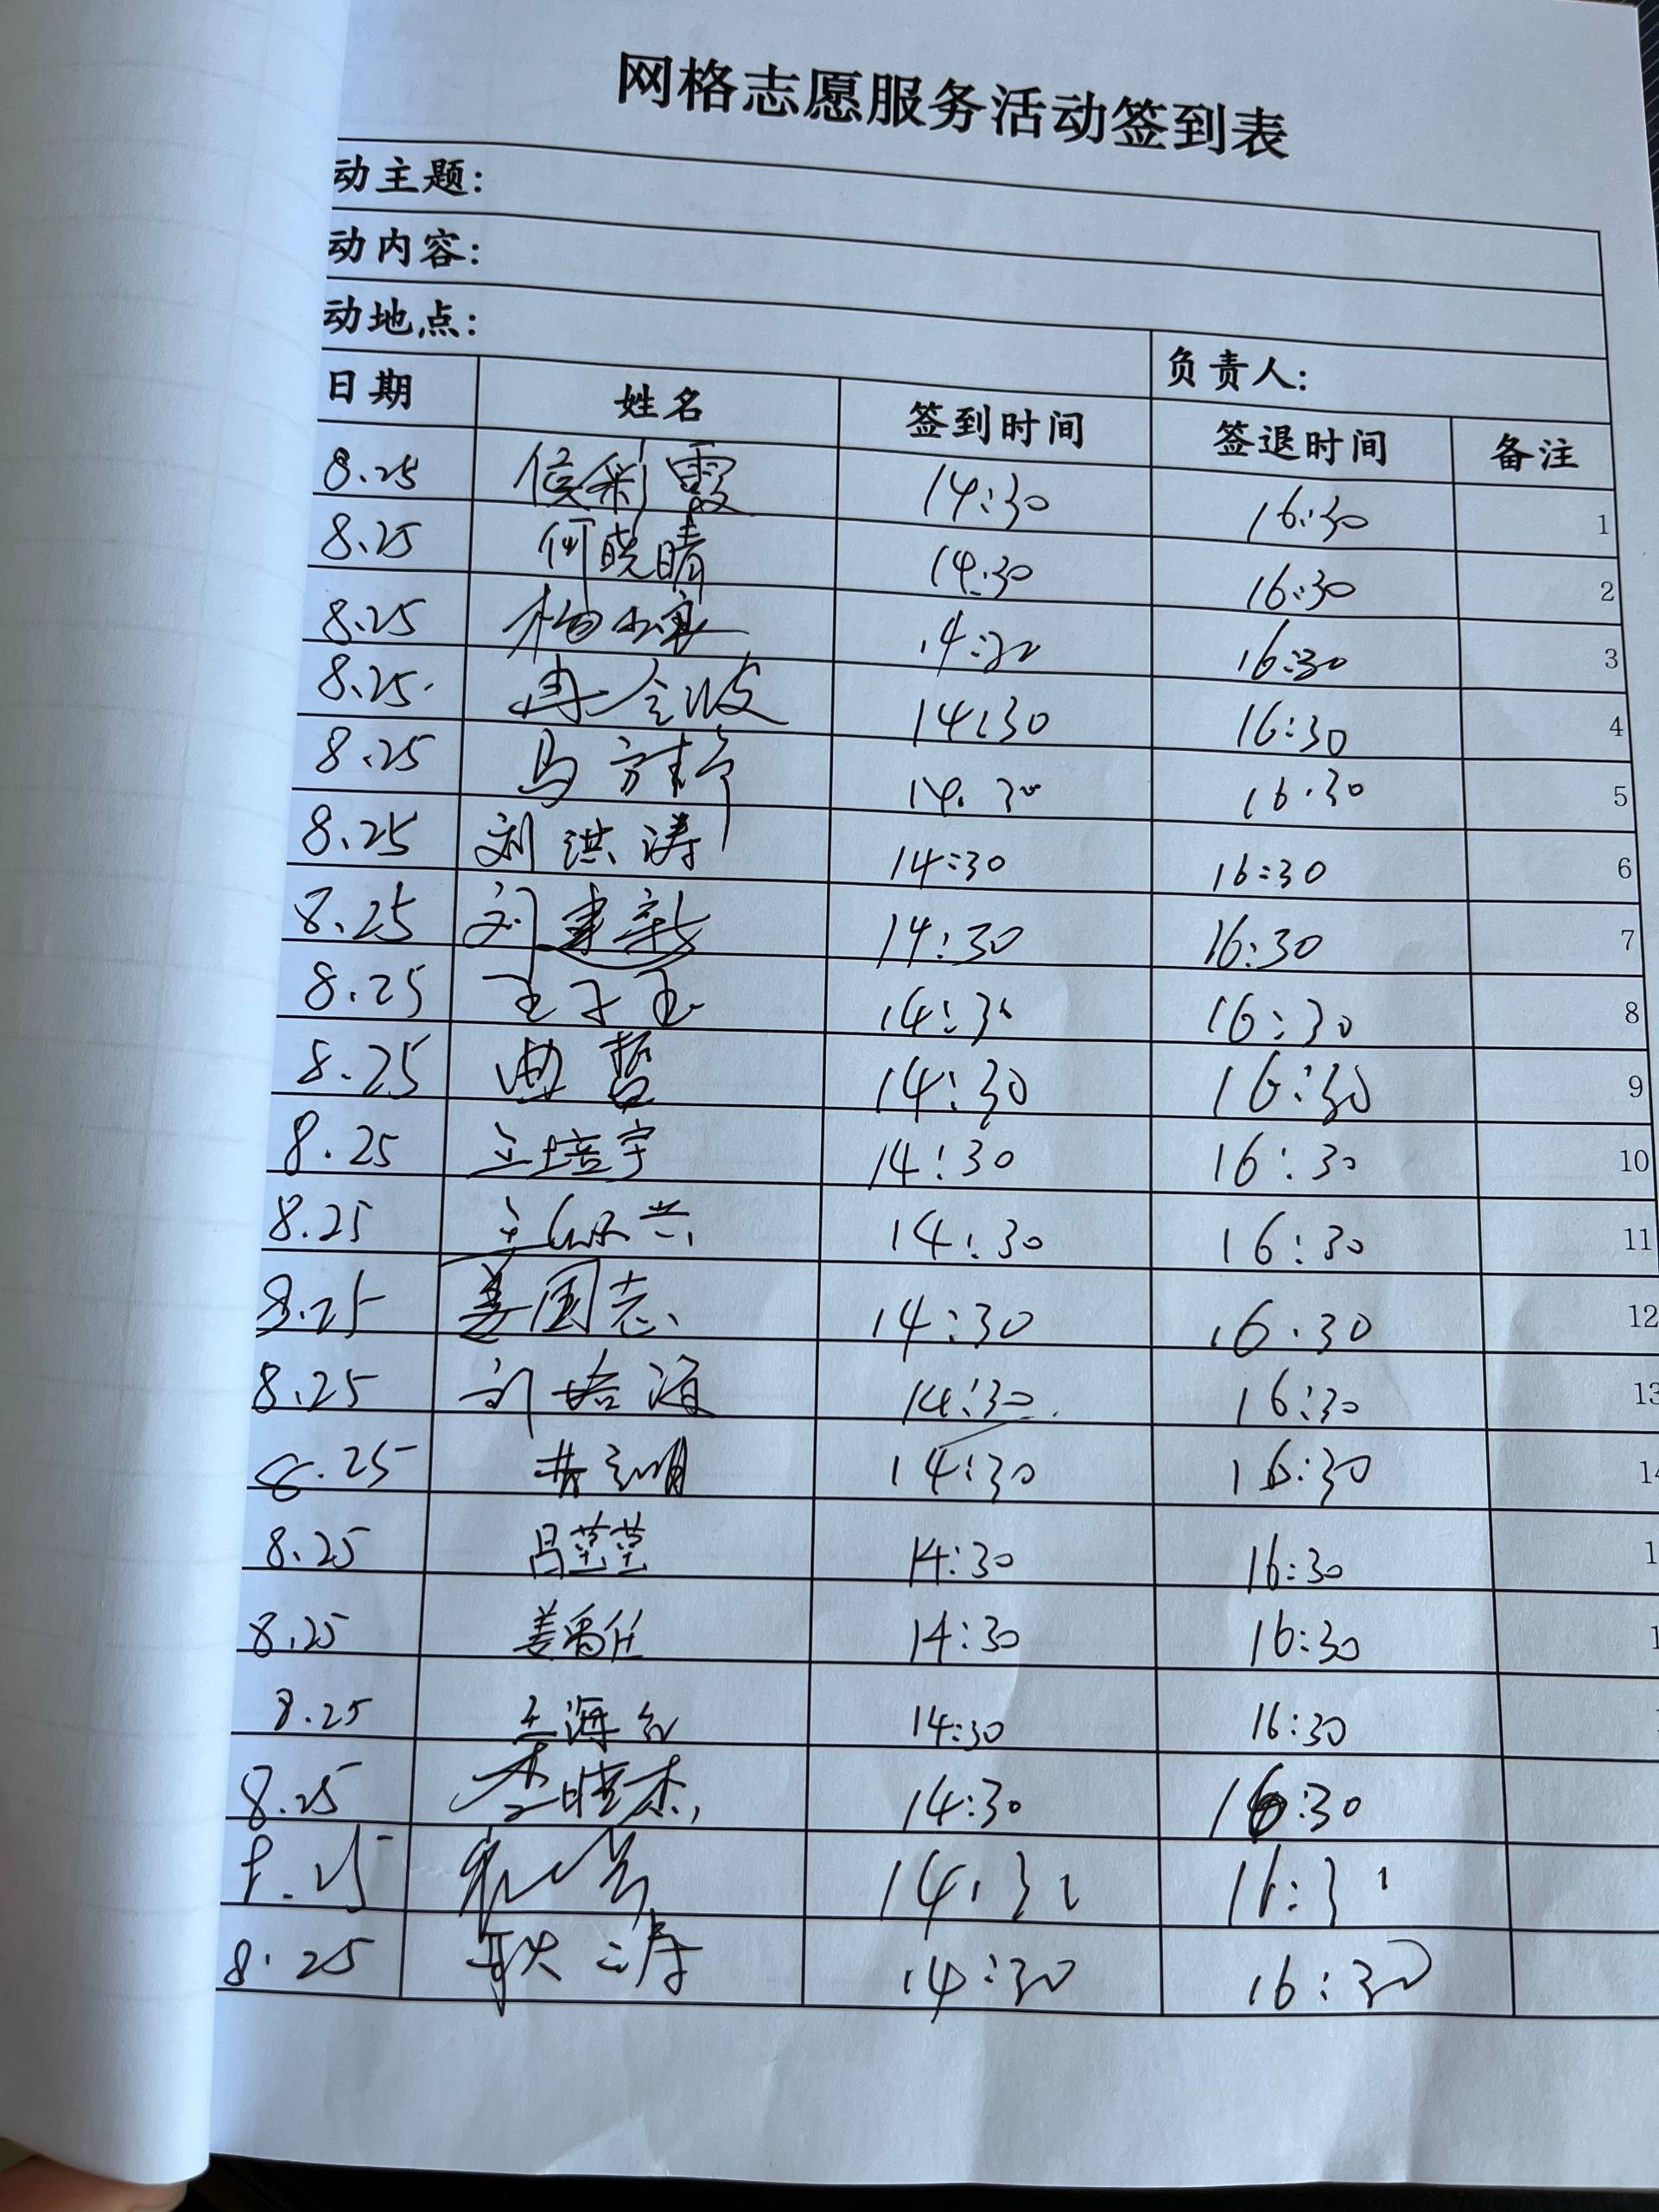 网格志愿服务活动签到表
动主题:
动内容:
动地点:
负责人:
日期 姓名 签到时间 签退时间 备注
8.25 侯彩霞 14:30 16:30 1
8.25 何晓晴 14:30 16:30 2
8.25 杨 16:30 3
8.25. 冉令波 14:30 16:30 4
8.25 马 14.30 16.30 5
8.25 刘洪涛 14:30 16:30 6
8.25 刘建新 14:30 16:30 7
8.25 王子玉 14:30 16:30 8
8.25 曲哲 14:30 16:30 9
8.25 王培宇 14:30 16:30 10
8.25 14:30 16:30 11
8.25 姜国志 14:30 16.30 12
8.25 刘培 14:30 16:30 13
8.25 14:30 16:30
8.25 吕莹莹 14:30 16:30
8.25 姜 14:30 16:30
8.25 王海红 14:30 16:30
8.25 李晓杰 14:30 16:30
8.25
8.25 耿涛 14:30 16:30